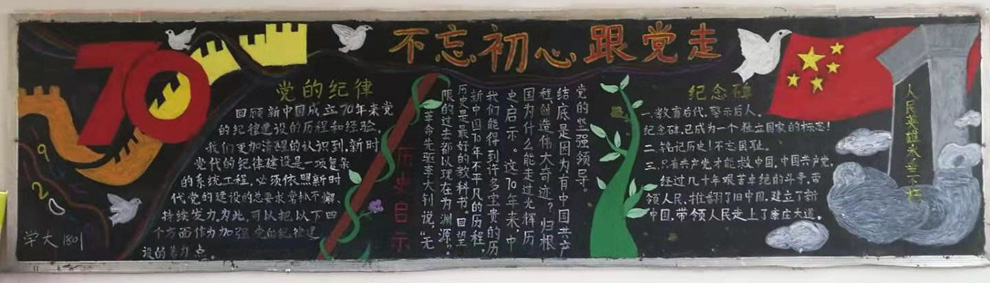 不忘初心跟党走
70
1920
学大1801
党的纪律
回顾新中国成立70年来党
的纪律建设的历程和经验,
我们更加清醒的认识到,新时
党代的纪律建设是一项复杂
的系统工程,必须依照新时
代党的建设的总要求常抓不懈,
持续发力,为此,可以把以下四
个方面作为加强党的纪律建
设的着力点。
历史启示
党的坚强领导。
结底是因为有中国共产
框创造伟大奇迹?归根
国为什么能走过光辉历
史启示。这70年来,中
我们能得到许多宝贵的历
新中国70年不平凡的历程,
历史是最好的教科书,回望
眼的过去都以现在为渊源。"
革命先驱李大钊说,"无
纪念碑
一.教育后代,警示后人。
纪念碑,已成为一个独立国家的标志!
二.铭记历史!不忘国耻。
三.只有共产党才能救中国,中国共产党,
经过几十年艰苦卓绝的斗争,带
领人民,推翻了旧中国,建立了新
中国,带领人民走上了康庄大道。
人民英雄永垂不朽